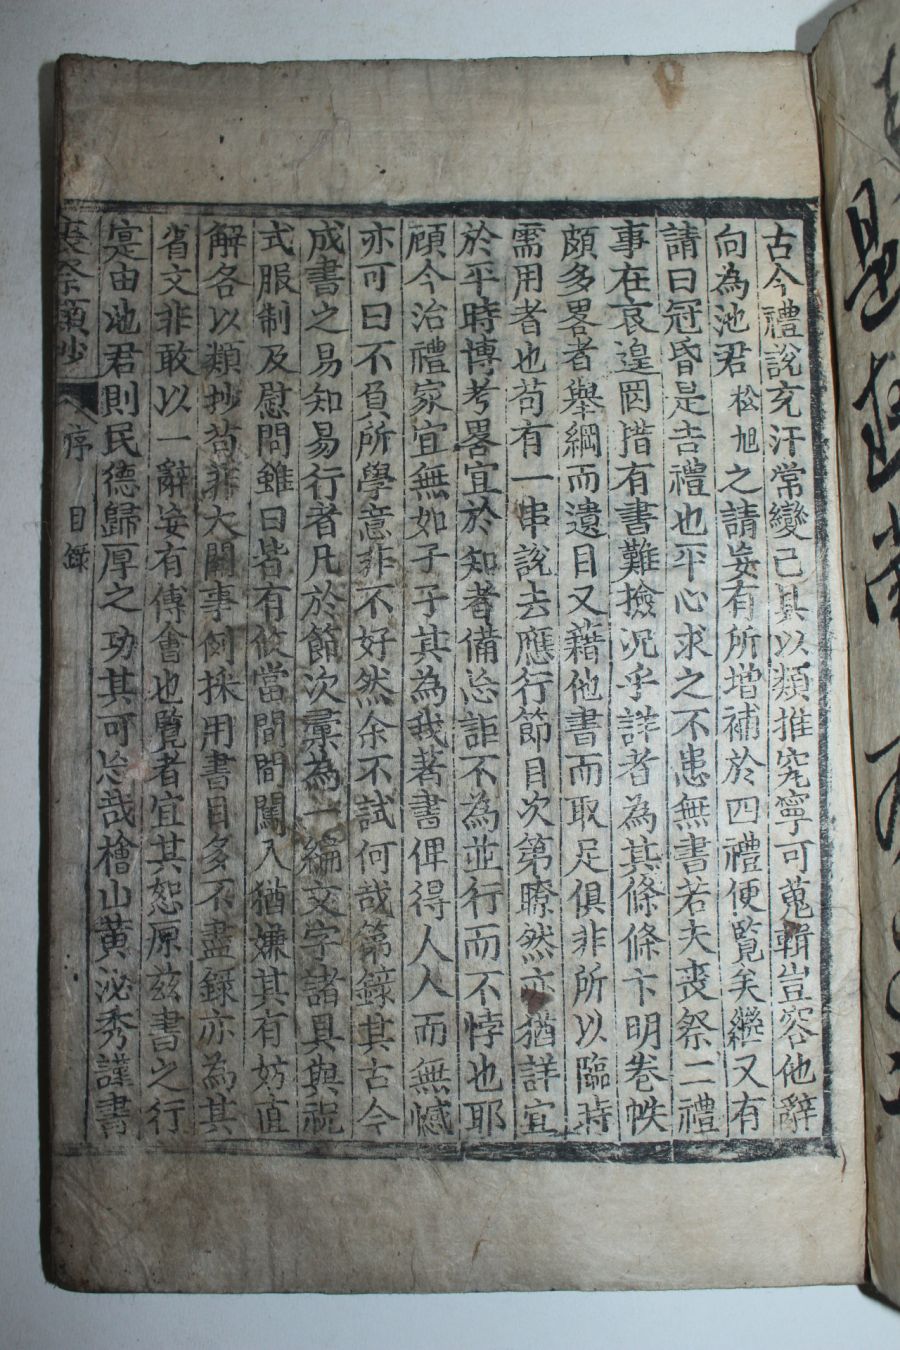 古今禮說充汗常變已具以類推究寧可蒐輯豈容他辭
向為池君松旭之請妄有所增補於四禮便覽矣繼又有
請曰冠昏是吉禮也平心求之不患無書若夫喪祭二禮
事在哀遑罔措有書難撿況乎詳者為其條條卞明卷帙
頗多畧者舉綱而遺目又藉他書而取足俱非所以臨時
需用者也苟有一串說去應行節目次第瞭然亦猶詳宜
於平時博考畧宜於知者備忘詎不為並行而不悖也耶
頋今治禮家宜無如子子其為我著書俾得人人而無憾
亦可曰不負所學意非不好然余不試何哉第錄其古今
成書之易知易行者凡於節次彙為一編文字諸具與祝
式服制及慰問雖曰皆有攸當間間闖入猶嫌其有妨直
解各以類抄苟非大關事例採用書目多不盡錄亦為其
省文非敢以一辭妄有傅會也覽者宜其恕原玆書之行
寔由池君則民德歸厚之功其可忘哉檜山黃泌秀謹書
喪祭類抄 序 目錄